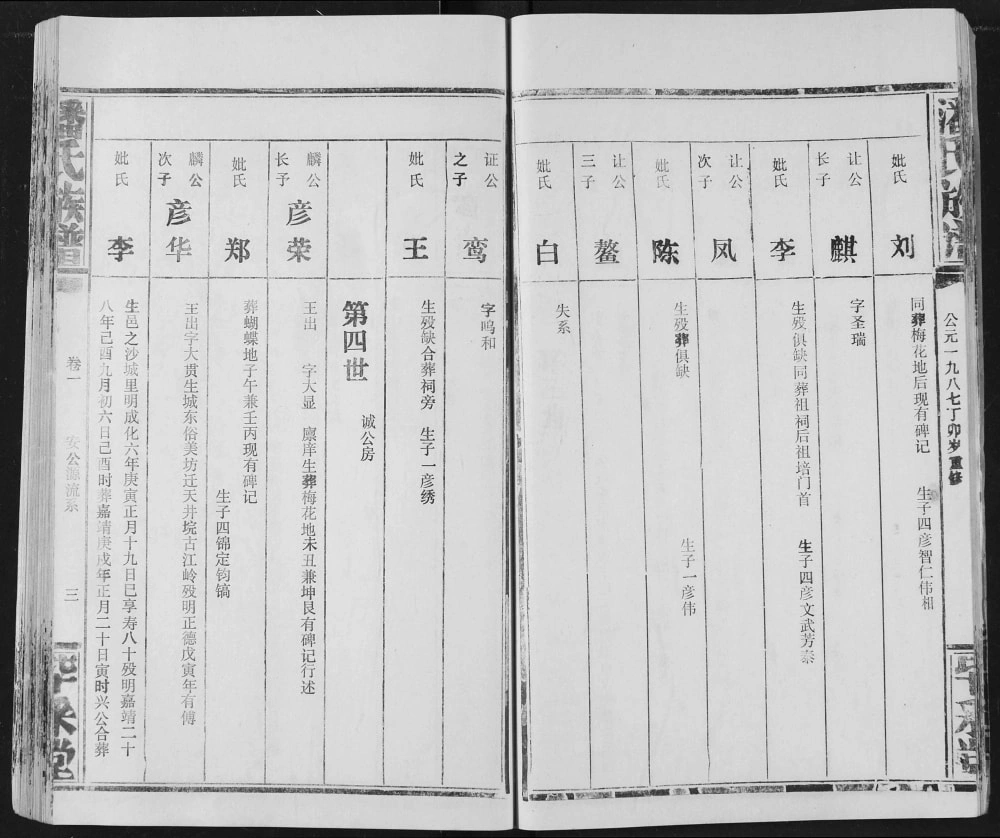 潘氏族谱
公元一九八七丁卯岁重修
妣氏
刘
同葬梅花地后现有碑记 生子四彦智仁伟相
让公
长子
麒
字圣瑞
妣氏
李
生殁俱缺同葬祖祠后祖培门首 生子四彦文武芳泰
让公
次子
凤
妣氏
陈
生殁葬俱缺 生子一彦伟
让公
三子
鳌
失系
妣氏
白
证公
之子
鸾
字鸣和
妣氏
王
生殁缺合葬祠旁 生子一彦绣
第四世
诚公房
麟公
长子
彦荣
王出 字大显 廪庠生葬梅花地未丑兼坤艮有碑记行述
妣氏
郑
葬蝴蝶地子午兼壬丙现有碑记
生子四锦定钧镐
麟公
次子
彦华
王出字大贯生城东俗美坊迁天井垸古江岭殁明正德戊寅年有傅
妣氏
李
生邑之沙城里明成化六年庚寅正月十九日巳享寿八十殁明嘉靖二十
八年己酉九月初六日己酉时葬嘉靖庚戌年正月二十日寅时兴公合葬
潘氏族谱
卷一
安公源流系
三
堂